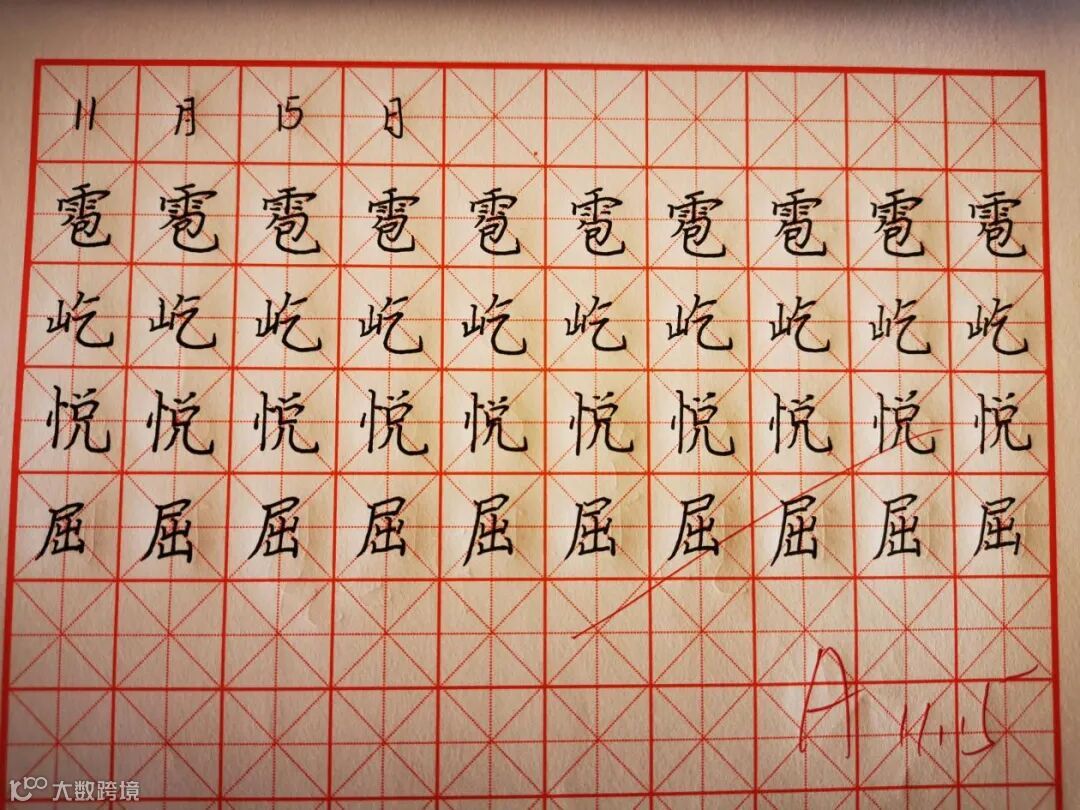 11 月 15 日
雹 雹 雹 雹 雹 雹 雹 雹 雹 雹
屹 屹 屹 屹 屹 屹 屹 屹 屹 屹
悦 悦 悦 悦 悦 悦 悦 悦 悦 悦
屈 屈 屈 屈 屈 屈 屈 屈 屈 屈
A 11.15
大数跨境